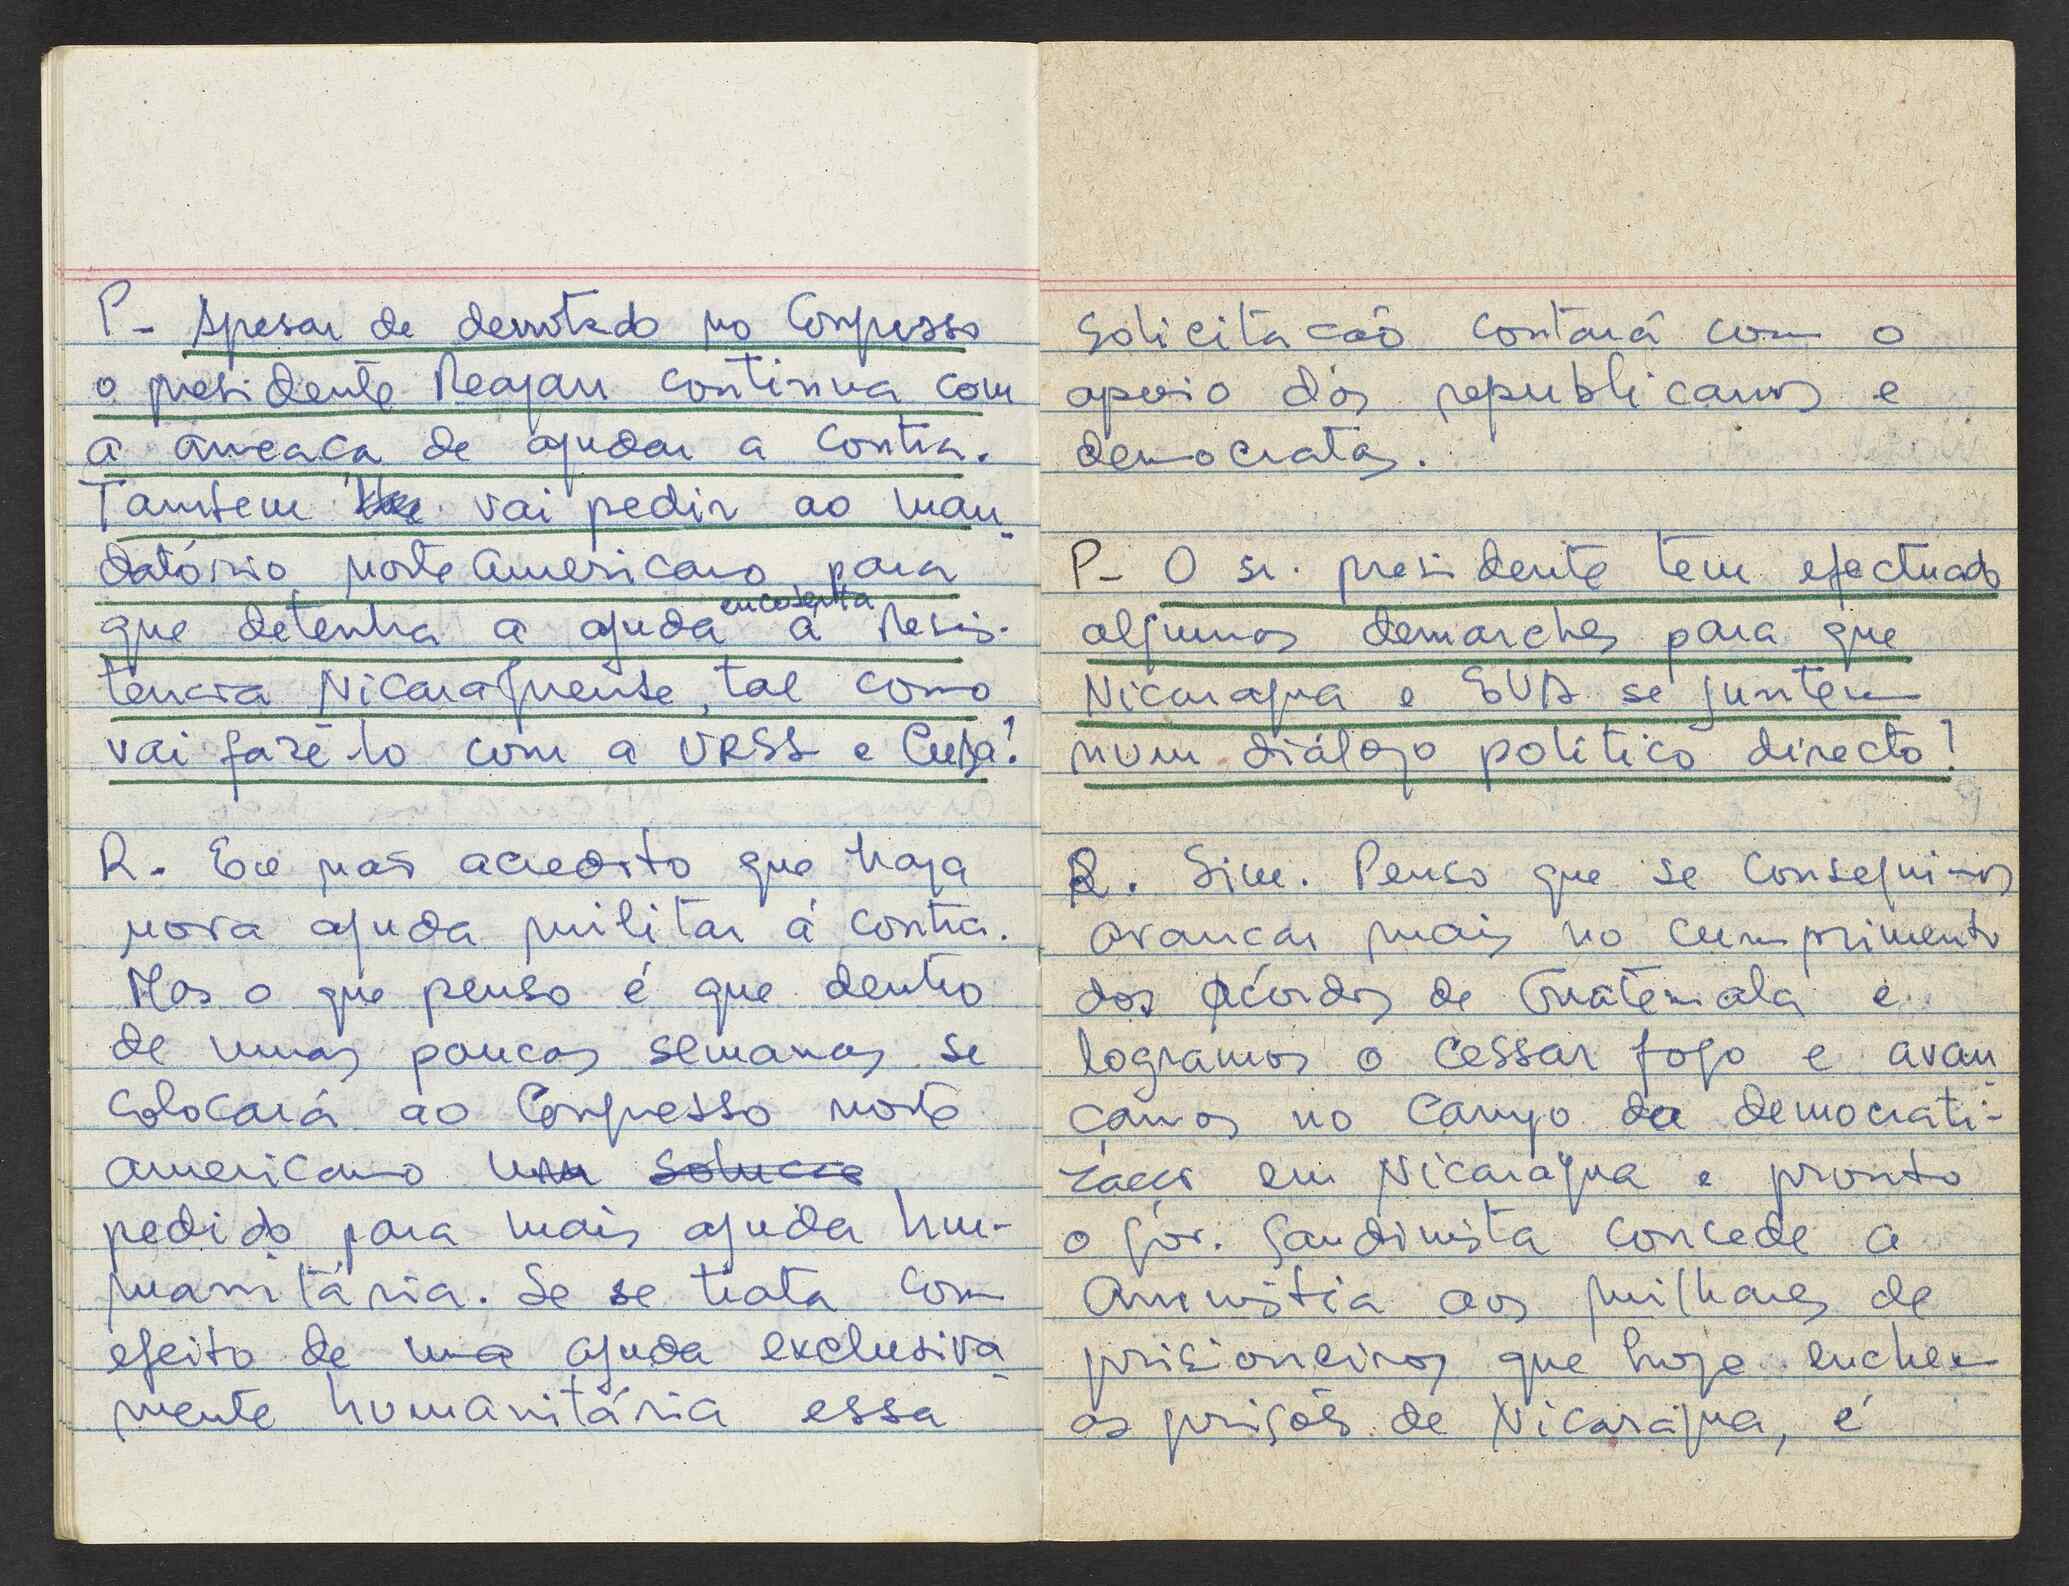 P- Apesar de derrotado no Congresso
o presidente Reagan continua com
a ameaca de ajudar a contra.
Tambem vai pedir ao man-
datório norte americano para
que detenha a ajuda encoberta á Resis-
tencia Nicaraguense, tal como
vai fazê-lo com a URSS e Cuba?
R. Eu não acredito que haja
nova ajuda militar á contra.
Mas o que penso é que dentro
de umas poucas semanas se
colocará ao Congresso norte
americano um solucao
pedido para mais ajuda hu-
manitária. Se se trata com
efeito de uma ajuda exclusiva-
mente humanitária essa
solicitacão contará com o
apoio dos republicanos e
democratas.
P- O sr. presidente tem efectuado
algumas demarches para que
Nicaragua e EUA se juntem
num diálogo politico directo?
R. Sim. Penso que se conseguimos
avancar mais no cumprimento
dos acordos de Guatemala e
logramos o cessar fogo e avan-
camos no campo da democrati-
zacao em Nicaragua e pronto
o gov. Sandinista concede a
Amnistia aos milhares de
prisioneiros que hoje enchem
as prisões de Nicaragua, é